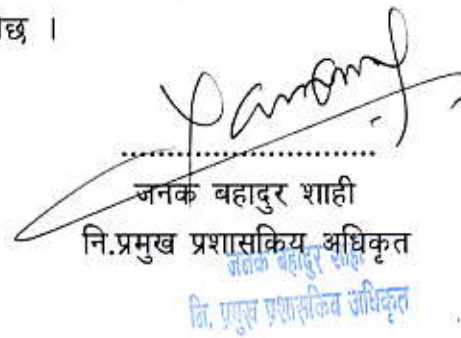 छ ।
जनक बहादुर शाही
नि.प्रमुख प्रशासकिय अधिकृत
जनक बहादुर शाही
नि. प्रमुख प्रशासकिय अधिकृत